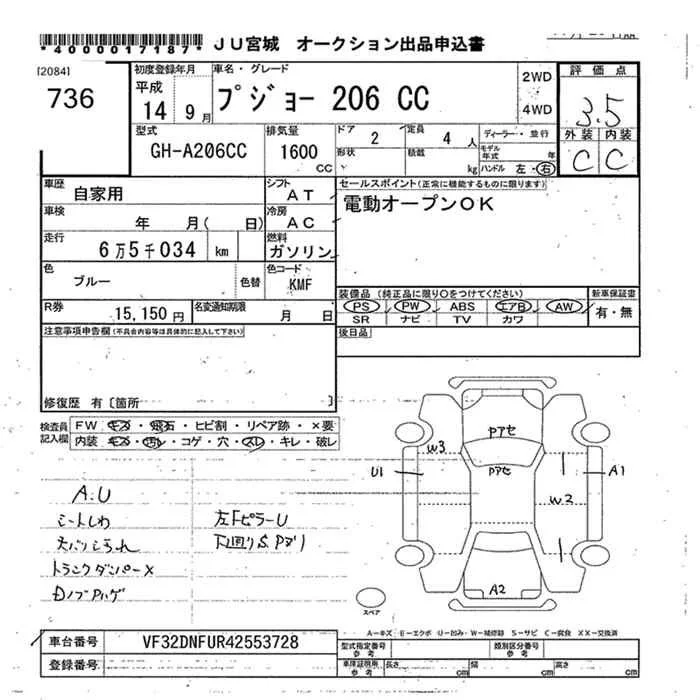 *4000017187* JU宮城 オークション出品申込書
[2084]
736
初度登録年月 車名・グレード
平成
14 9月
プジョー 206 CC
2WD
4WD
評価点
3.5
外装 内装
C C
型式 排気量 ドア 定員 ディーラー・並行
GH-A206CC 1600 CC 2 4人
形状 積載 kg
モデル年式 年
ハンドル 左・右
車歴 自家用 シフト AT
セールスポイント(正常に機能するものに限ります)
電動オープンOK
車検 年 月( 日) 冷房 AC
走行 6万5千034 km 燃料 ガソリン
色 ブルー 色替 色コード KMF
装備品 (純正品に限り○をつけてください) 新車保証書
PS PW ABS エアB AW 有・無
SR ナビ TV カワ
R券 15,150円 名変通知期限 月 日
注意事項申告欄(不具合内容等は具体的に記入して下さい) 後日品
修復歴 有〔箇所 〕
検査員記入欄 FW キズ・飛石・ヒビ割・リペア跡・×要
内装 キズ・汚れ・コゲ・穴・スレ・キレ・破レ
Pアセ
W3
Pアセ
U1 A1
W2
A2
スペア
A.U
シートしわ 左FピラーU
下廻りS.Pサリ
トランクダンパーX
A－キズ E－エクボ U－凹み W－補修跡 S－サビ C－腐食 XX－交換済
車台番号 VF32DNFUR42553728 型式指定番号 参考 類別区分番号 参考
登録番号 車庫証明用 参考 長さ cm 幅 cm 高さ cm